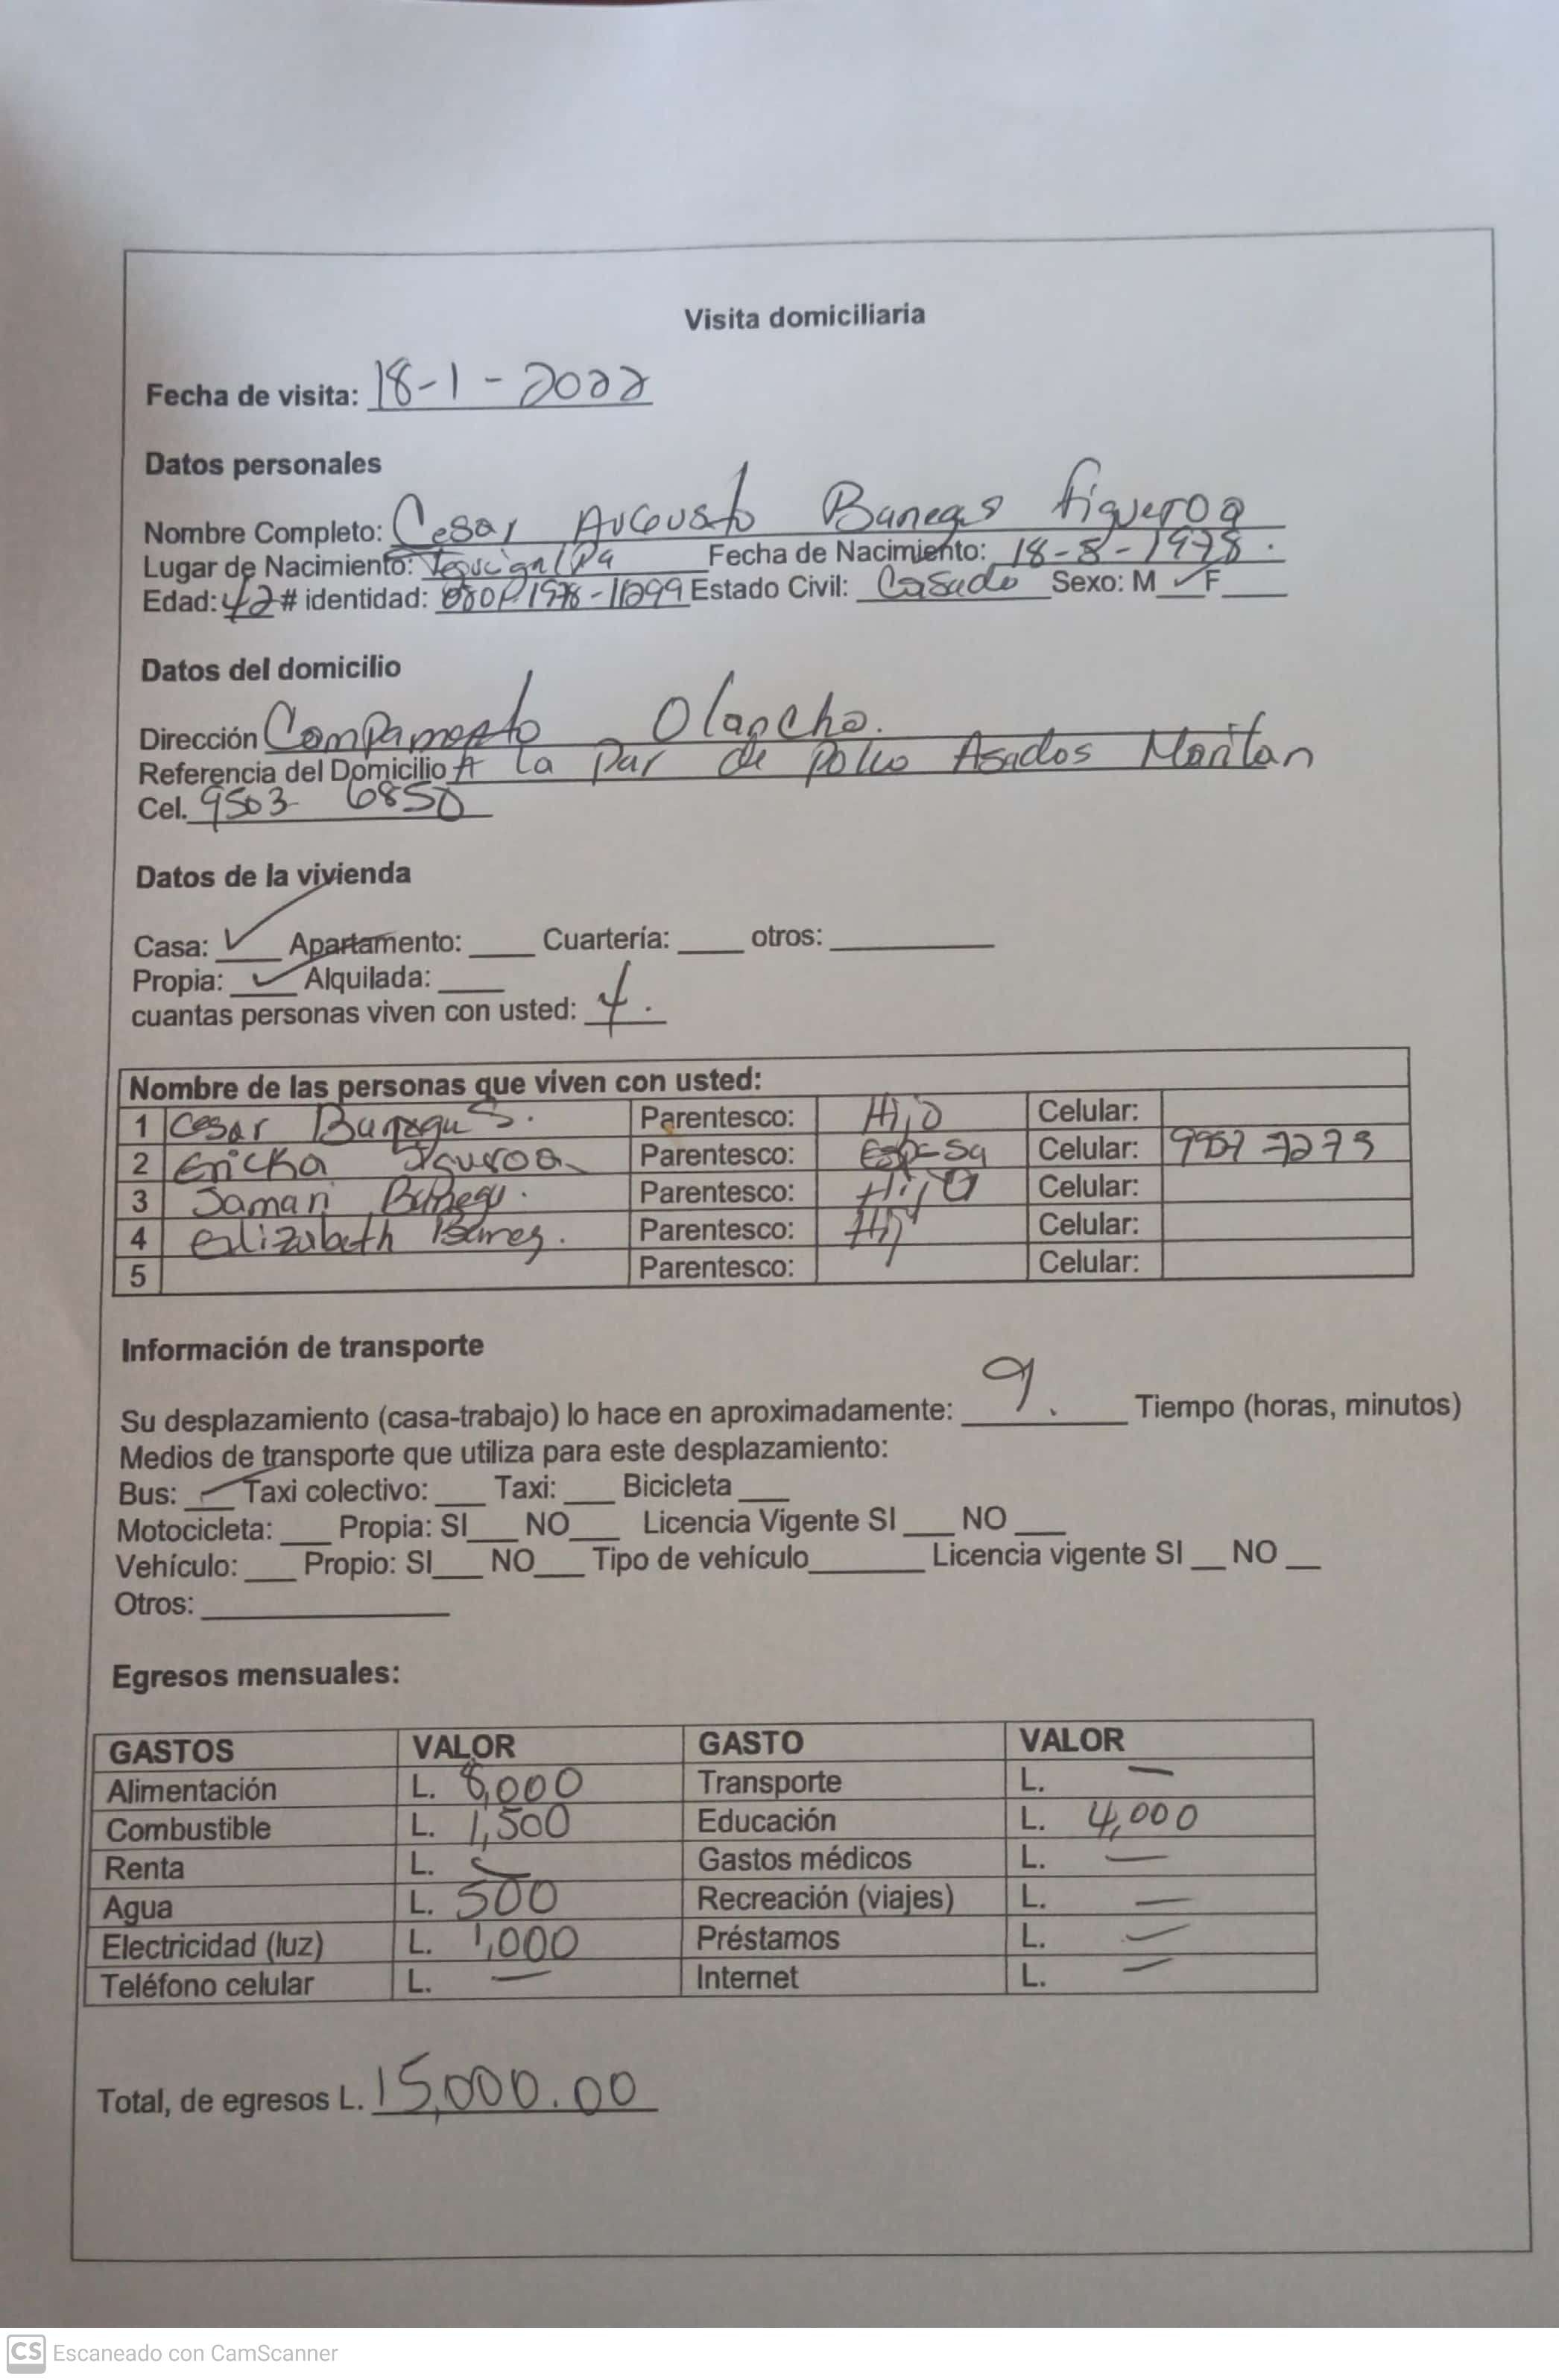 Visita domiciliaria
Fecha de visita: 18-1-2022
Datos personales
Nombre Completo: Cesar Augusto Banegas Figueroa
Lugar de Nacimiento: Tegucigalpa Fecha de Nacimiento: 18-8-1978.
Edad: 42 # identidad: Estado Civil: Casado Sexo: M ✓ F____
Datos del domicilio
Dirección Campamento Olancho.
Referencia del Domicilio A la par de Pollo Asados
Cel. 9503 6850
Datos de la vivienda
Casa: ✓ Apartamento: ____ Cuartería: ____ otros: ________
Propia: ✓ Alquilada: ____
cuantas personas viven con usted: 4.
Nombre de las personas que viven con usted:
1 Cesar Banegas. Parentesco: Hijo Celular:
2 Ericka Figueroa Parentesco: Esposa Celular: 7273
3 Banegas. Parentesco: Celular:
4 Elizabeth Parentesco: Celular:
5 Parentesco: Celular:
Información de transporte
Su desplazamiento (casa-trabajo) lo hace en aproximadamente: 9. Tiempo (horas, minutos)
Medios de transporte que utiliza para este desplazamiento:
Bus: ✓ Taxi colectivo: ___ Taxi: ___ Bicicleta ___
Motocicleta: ___ Propia: SI___ NO___ Licencia Vigente SI ___ NO ___
Vehículo: ___ Propio: SI___ NO___ Tipo de vehículo_______ Licencia vigente SI __ NO __
Otros: ______________
Egresos mensuales:
GASTOS VALOR GASTO VALOR
Alimentación L. 8,000 Transporte L. —
Combustible L. 1,500 Educación L. 4,000
Renta L. — Gastos médicos L. —
Agua L. 500 Recreación (viajes) L. —
Electricidad (luz) L. 1,000 Préstamos L. —
Teléfono celular L. — Internet L. —
Total, de egresos L. 15,000.00
CS Escaneado con CamScanner